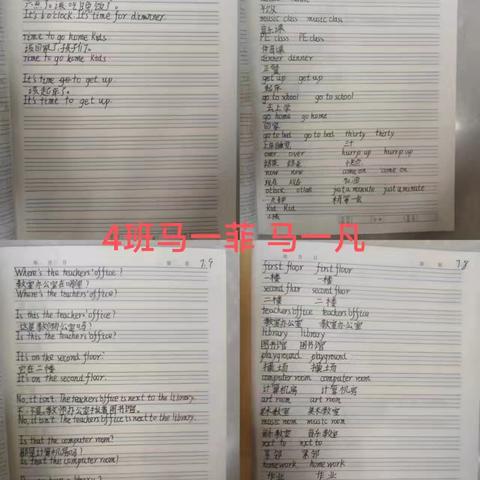 六点了。该吃晚饭了。
It's 6 o'clock. It's time for dinner.
Time to go home kids
该回家了,孩子们。
Time to go home kids.
It's time go to get up.
该起床了。
It's time to get up.
music class music class
音乐课
PE class PE class
体育课
dinner dinner
正餐
get up get up
起床
go to school go to school
去上学
go home go home
回家
go to bed go to bed thirty thirty
上床睡觉 三十
over over hurry up hurry up
结束 结束 快点
now now come on come on
现在 现在 加油
just a minute just a minute
稍等一会
Kid Kid
小孩
4班马一菲 马一凡
7.9
Where's the teachers' office?
教室办公室在哪里?
Where's the teachers' office?
Is this the teachers' office?
这是教师办公室吗?
Is this the teachers' office?
It's on the second floor.
它在二楼
It's on the second floor.
No, it isn't. The teachers' office is next to the library.
不,不是。教师办公室挨着图书馆。
No, it isn't. The teachers' office is next to the library.
Is that the computer room?
那是计算机房吗?
Is that the computer room?
7.8
first floor first floor
一楼 一楼
second floor second floor
二楼 二楼
teachers' office teachers' office
教室办公室 教室办公室
library library
图书馆 图书馆
playground playground
操场 操场
computer room computer room
计算机房 计算机房
art room art room
美术教室 美术教室
music room music room
音乐教室 音乐教室
next to next to
紧邻 紧邻
homework homework
作业 作业